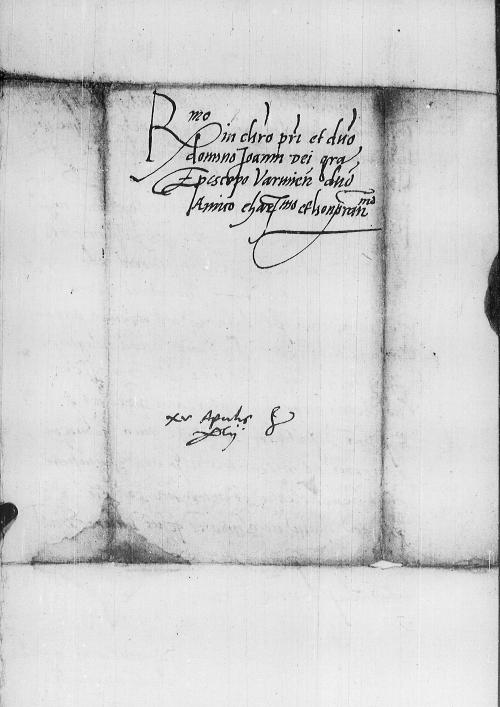 Rmo
in chro pri et duo
domino Joanni Dei gra
Episcopo Varmien duo
Amico charmo et hon
xv Aprilis
xlij